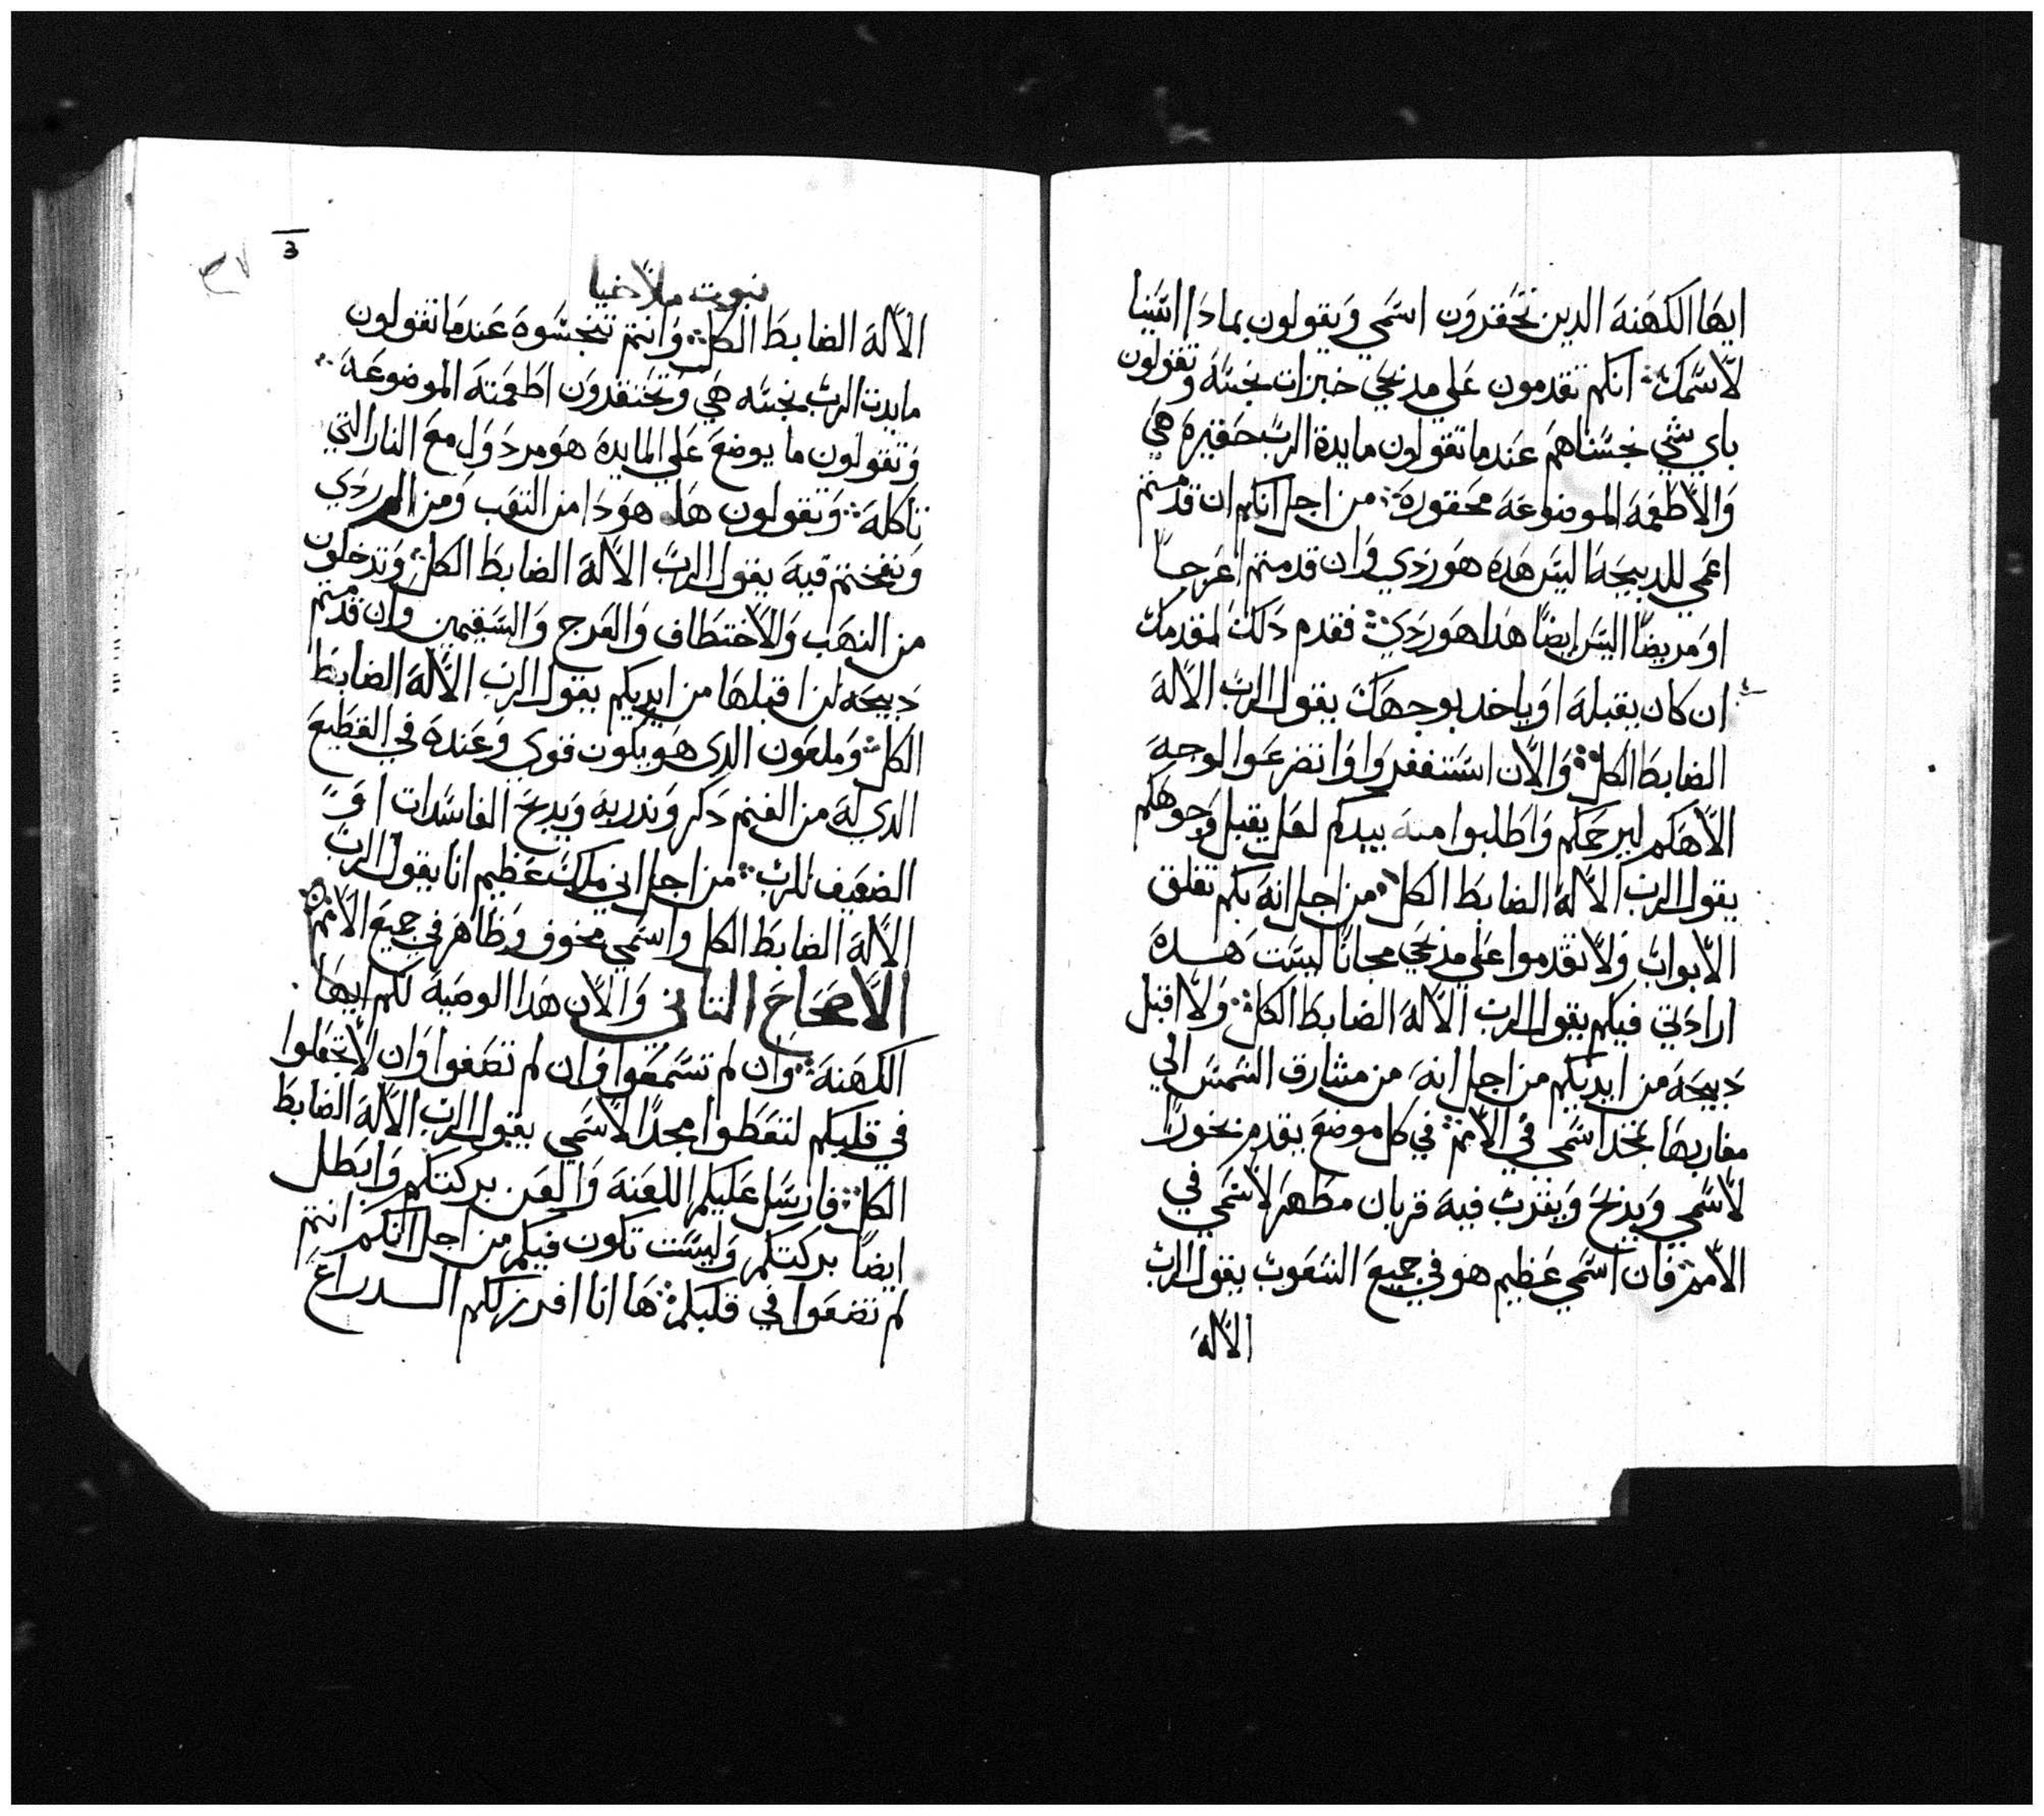 ايها الكهنة الدين تحقرون اسمي ويقولون بمادا اتينا
لاسمك انكم تقدمون علي مدبحي خبزات نجسه وتقولون
باي شي نجسناهم عندما تقولون مايدة الرب حقيرة هي
والاطعمه الموضوعه محقوره من اجل انكم ان قدمتم
اعمي للدبيحه اليس هده هو ردي وان قدمتم اعرجا
او مريضا اليس ايضا هدا هو ردي فقدم دلك لمقدمك
ان كان يقبله او ياخد بوجهك يقول الرب الاله
الضابط الكل والان استغفروا وانضرعوا لوجه
الاهكم ليرحمكم واطلبوا منه بيدكم لعل يقبل وجوهكم
يقول الرب الاله الضابط الكل من اجل انه بكم تغلق
الابواب ولا تقدموا علي مدبحي مجانا ليست هده
ارادتي فيكم يقول الرب الاله الضابط الكل ولا اقبل
دبيحه من ايديكم من اجل انه من مشارق الشمس الي
مغاربها تمجد اسمي في الامم في كل موضع يقدم بخورا
لاسمي ويدبح ويقرب فيه قربان مطهر لاسمي في
الامم فان اسمي عظيم هو في جميع الشعوب يقول الرب
الاله
3
نبوت ملاخيا
الاله الضابط الكل وانتم تنجسوه عندما تقولون
مايدت الرب نجسه هي وتحتقرون اطعمته الموضوعه
وتقولون ما يوضع علي المايده هو مردول مع النار التي
تاكله وتقولون هل هو دا من التعب ومن الردي
ونفختم فيه يقول الرب الاله الضابط الكل وتدخلون
من النهب والاختطاف والعرج والسقيمين وان قدمتم
دبيحه لن اقبلها من ايديكم يقول الرب الاله الضابط
الكل وملعون الدي هو يكون قوي وعنده في القطيع
الدي له من الغنم دكر وندر به ويدبح الفاسدات او
الضعيف للرب من اجل اني ملك عظيم انا يقول الرب
الاله الضابط الكل واسمي مخوف وظاهر في جميع الامم
الاصحاح التاني والان هدا الوصية لكم ايها
الكهنة وان لم تسمعوا وان لم تضعوا وان لا تجعلوا
في قلبكم لتعطوا مجدا لاسمي يقول الرب الاله الضابط
الكل فارسل عليكم اللعنة والعن بركتكم وابطل
ايضا بركتكم وليست تكون فيكم من اجل انكم انتم
لم تضعوا في قلبكم ها انا افرز لكم الدراع